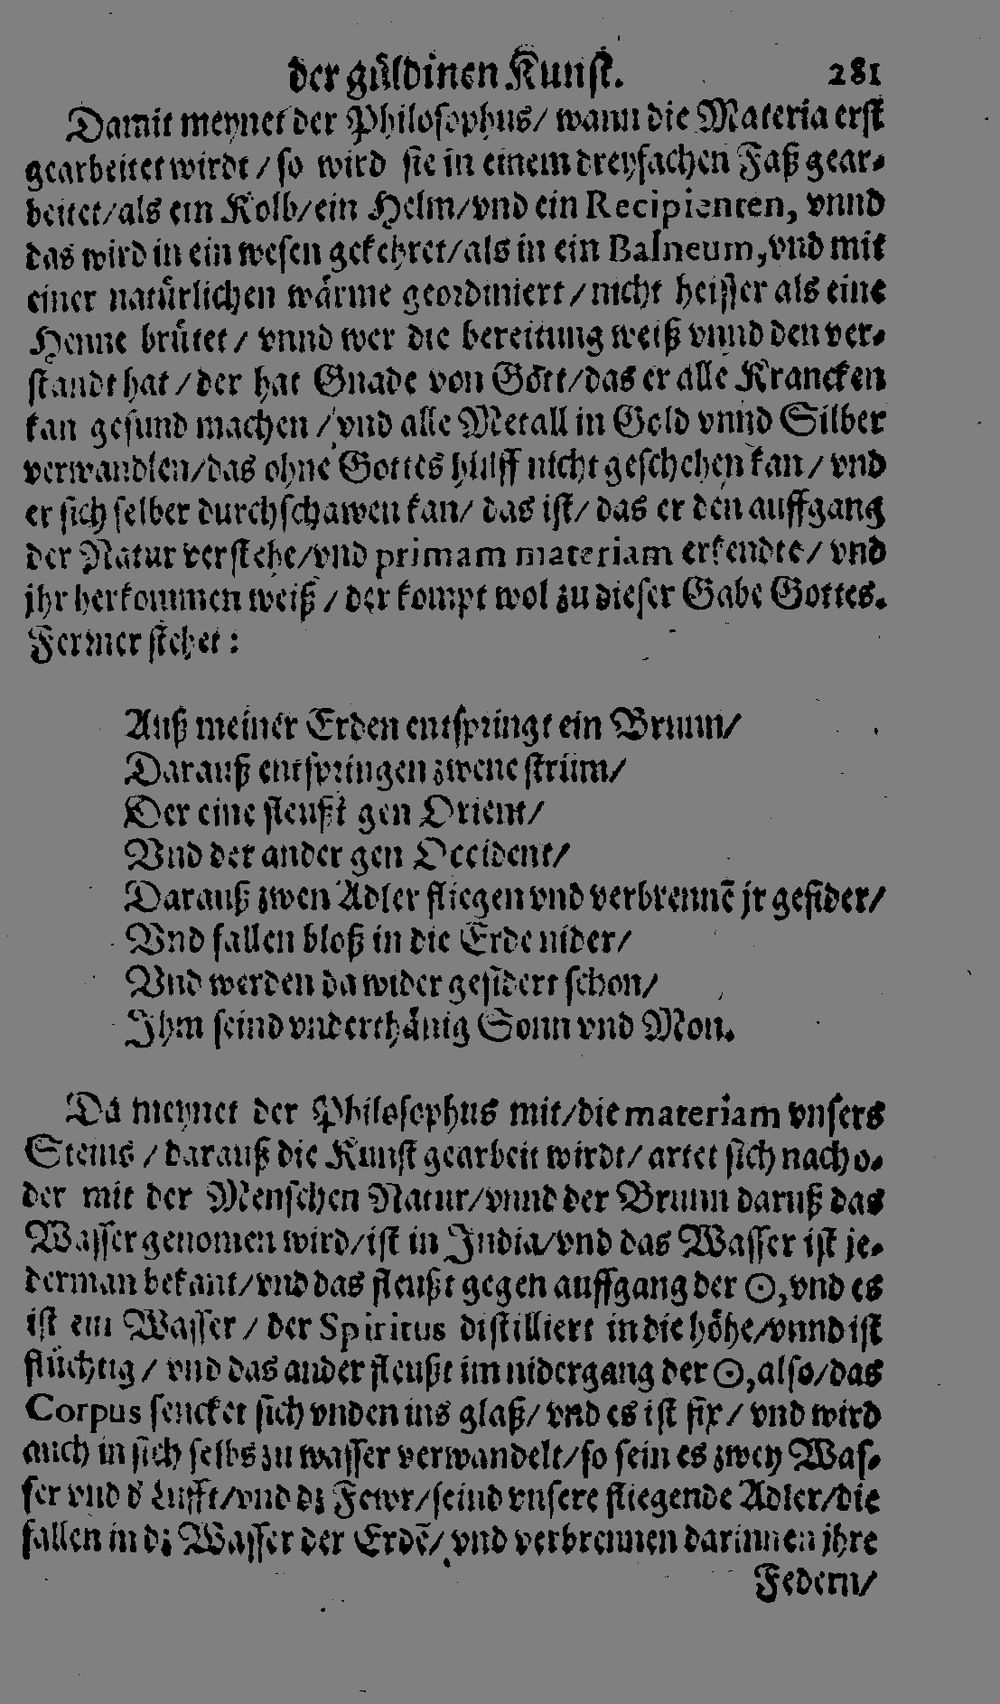 der güldinen Kunst. 281
Damit meynet der Philosophus/ wann die Materia erst
gearbeitet wirdt / so wird sie in einem dreyfachen Faß gear-
beitet/als ein Kolb/ein Helm/vnd ein Recipienten, vnnd
das wird in ein wesen gekehret/als in ein Balneum,vnd mit
einer natürlichen wärme geordiniert / nicht heisser als eine
Henne brütet / vnnd wer die bereitung weiß vnnd den ver-
standt hat / der hat Gnade von Gott/das er alle Krancken
kan gesund machen / vnd alle Metall in Gold vnnd Silber
verwandlen/das ohne Gottes hülff nicht geschehen kan / vnd
er sich selber durchschawen kan/ das ist/ das er den auffgang
der Natur verstehe/vnd primam materiam erkendte/ vnd
jhr herkommen weiß / der kompt wol zu dieser Gabe Gottes.
Ferrner stehet :
Auß meiner Erden entspringt ein Brunn/
Darauß entspringen zwene ström/
Der eine fleußt gen Orient/
Vnd der ander gen Occident/
Darauß zwen Adler fliegen vnd verbrennē jr gefider/
Vnd fallen bloß in die Erde nider/
Vnd werden da wider gefidert schon/
Ihm seind vnderthänig Sonn vnd Mon.
Da meynet der Philosophus mit/die materiam vnsers
Steins / darauß die Kunst gearbeit wirdt/ artet sich nach o-
der mit der Menschen Natur/vnnd der Brunn daruß das
Wasser genomen wird/ist in India/vnd das Wasser ist je-
derman bekant/vnd das fleußt gegen auffgang der ☉,vnd es
ist ein Wasser / der Spiritus distilliert in die höhe/vnnd ist
flüchtig / vnd das ander fleußt im nidergang der ☉,also/das
Corpus sencket sich vnden ins glaß/ vnd es ist fix / vnd wird
auch in sich selbs zu wasser verwandelt/so sein es zwey Was-
ser vnd d' Lufft/vnd dz Fewr/seind vnsere fliegende Adler/die
fallen in dz Wasser der Erdē/ vnd verbrennen darinnen jhre
Federn/